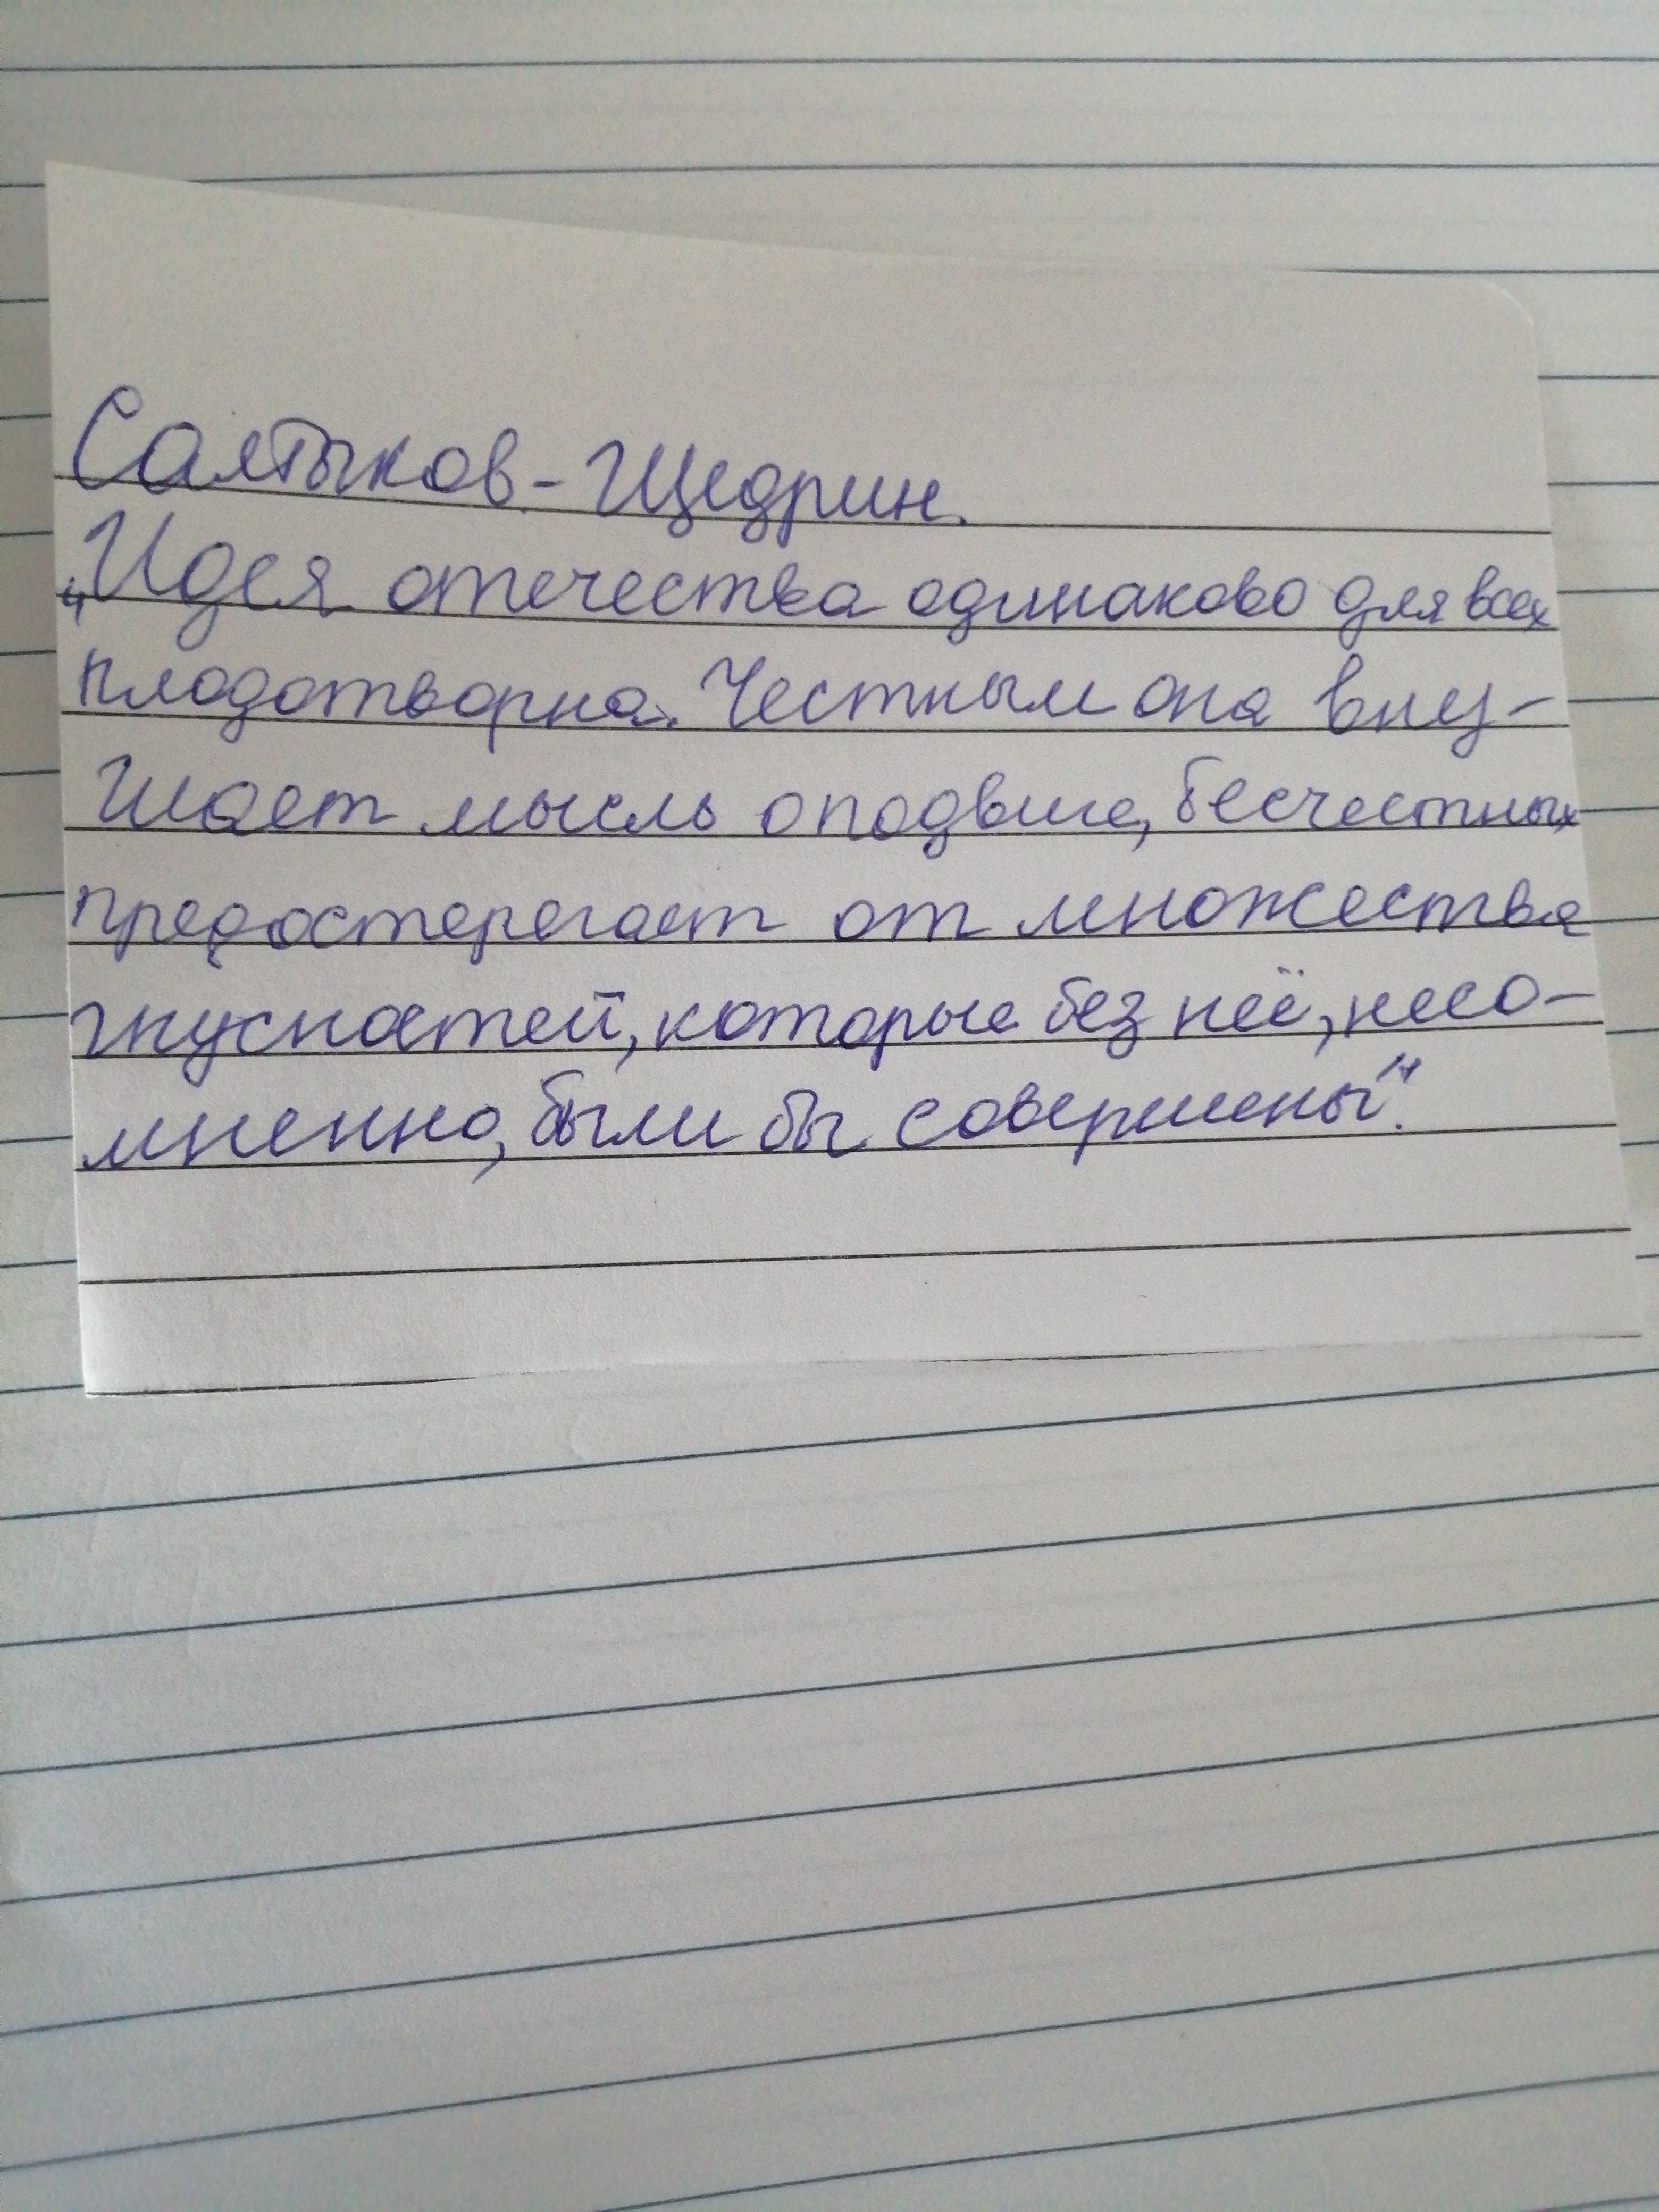 Салтыков-Щедрин.
„Идея отечества одинаково для всех
плодотворна. Честным она вну-
шает мысль о подвиге, бесчестных
предостерегает от множества
гнусностей, которые без неё, несо-
мненно, были бы совершены".